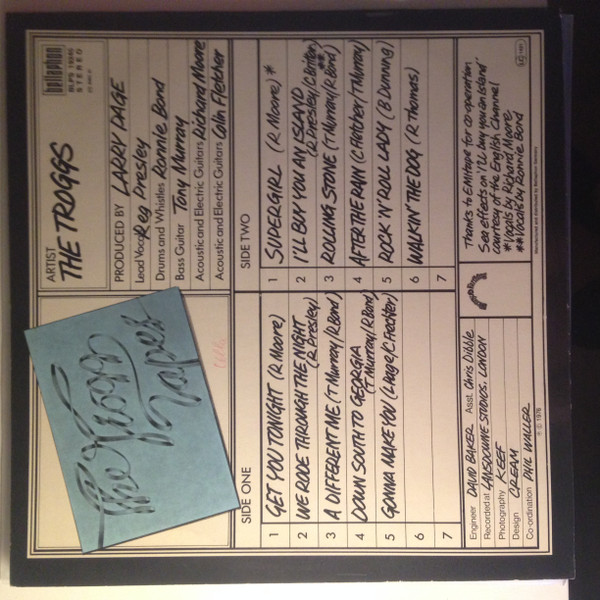 ARTIST
THE TROGGS
bellaphon
BLPS 19255
STEREO
PRODUCED BY LARRY PAGE
Lead Vocal Reg Presley
Drums and Whistles Ronnie Bond
Bass Guitar Tony Murray
Acoustic and Electric Guitars Richard Moore
Acoustic and Electric Guitars Colin Fletcher
The Trogg
Tapes
SIDE ONE
1 GET YOU TONIGHT (R. Moore)
2 WE RODE THROUGH THE NIGHT
(R. Presley)
3 A DIFFERENT ME (T Murray/R Bond)
4 DOWN SOUTH TO GEORGIA
(T Murray/R Bond)
5 GONNA MAKE YOU (L Page/C Fletcher)
6
7
SIDE TWO
1 SUPERGIRL (R Moore)*
2 I'LL BUY YOU AN ISLAND
(R Presley/R Britton)
3 ROLLING STONE (T Murray/R Bond)**
4 AFTER THE RAIN (C Fletcher/T Murray)
5 ROCK 'N' ROLL LADY (B Dunning)
6 WALKIN' THE DOG (R Thomas)
7
Engineer DAVID BAKER Asst. Chris Dibble
Recorded at LANSDOWNE STUDIOS, LONDON
Photography KEEF
Design CREAM
Co-ordination PHIL WALLER
℗ © 1976
Thanks to EMItape for co-operation
Sea effects on 'I'll buy you an Island'
courtesy of the English Channel
*Vocals by Richard Moore
**Vocals by Ronnie Bond
Manufactured and distributed by Bellaphon Germany